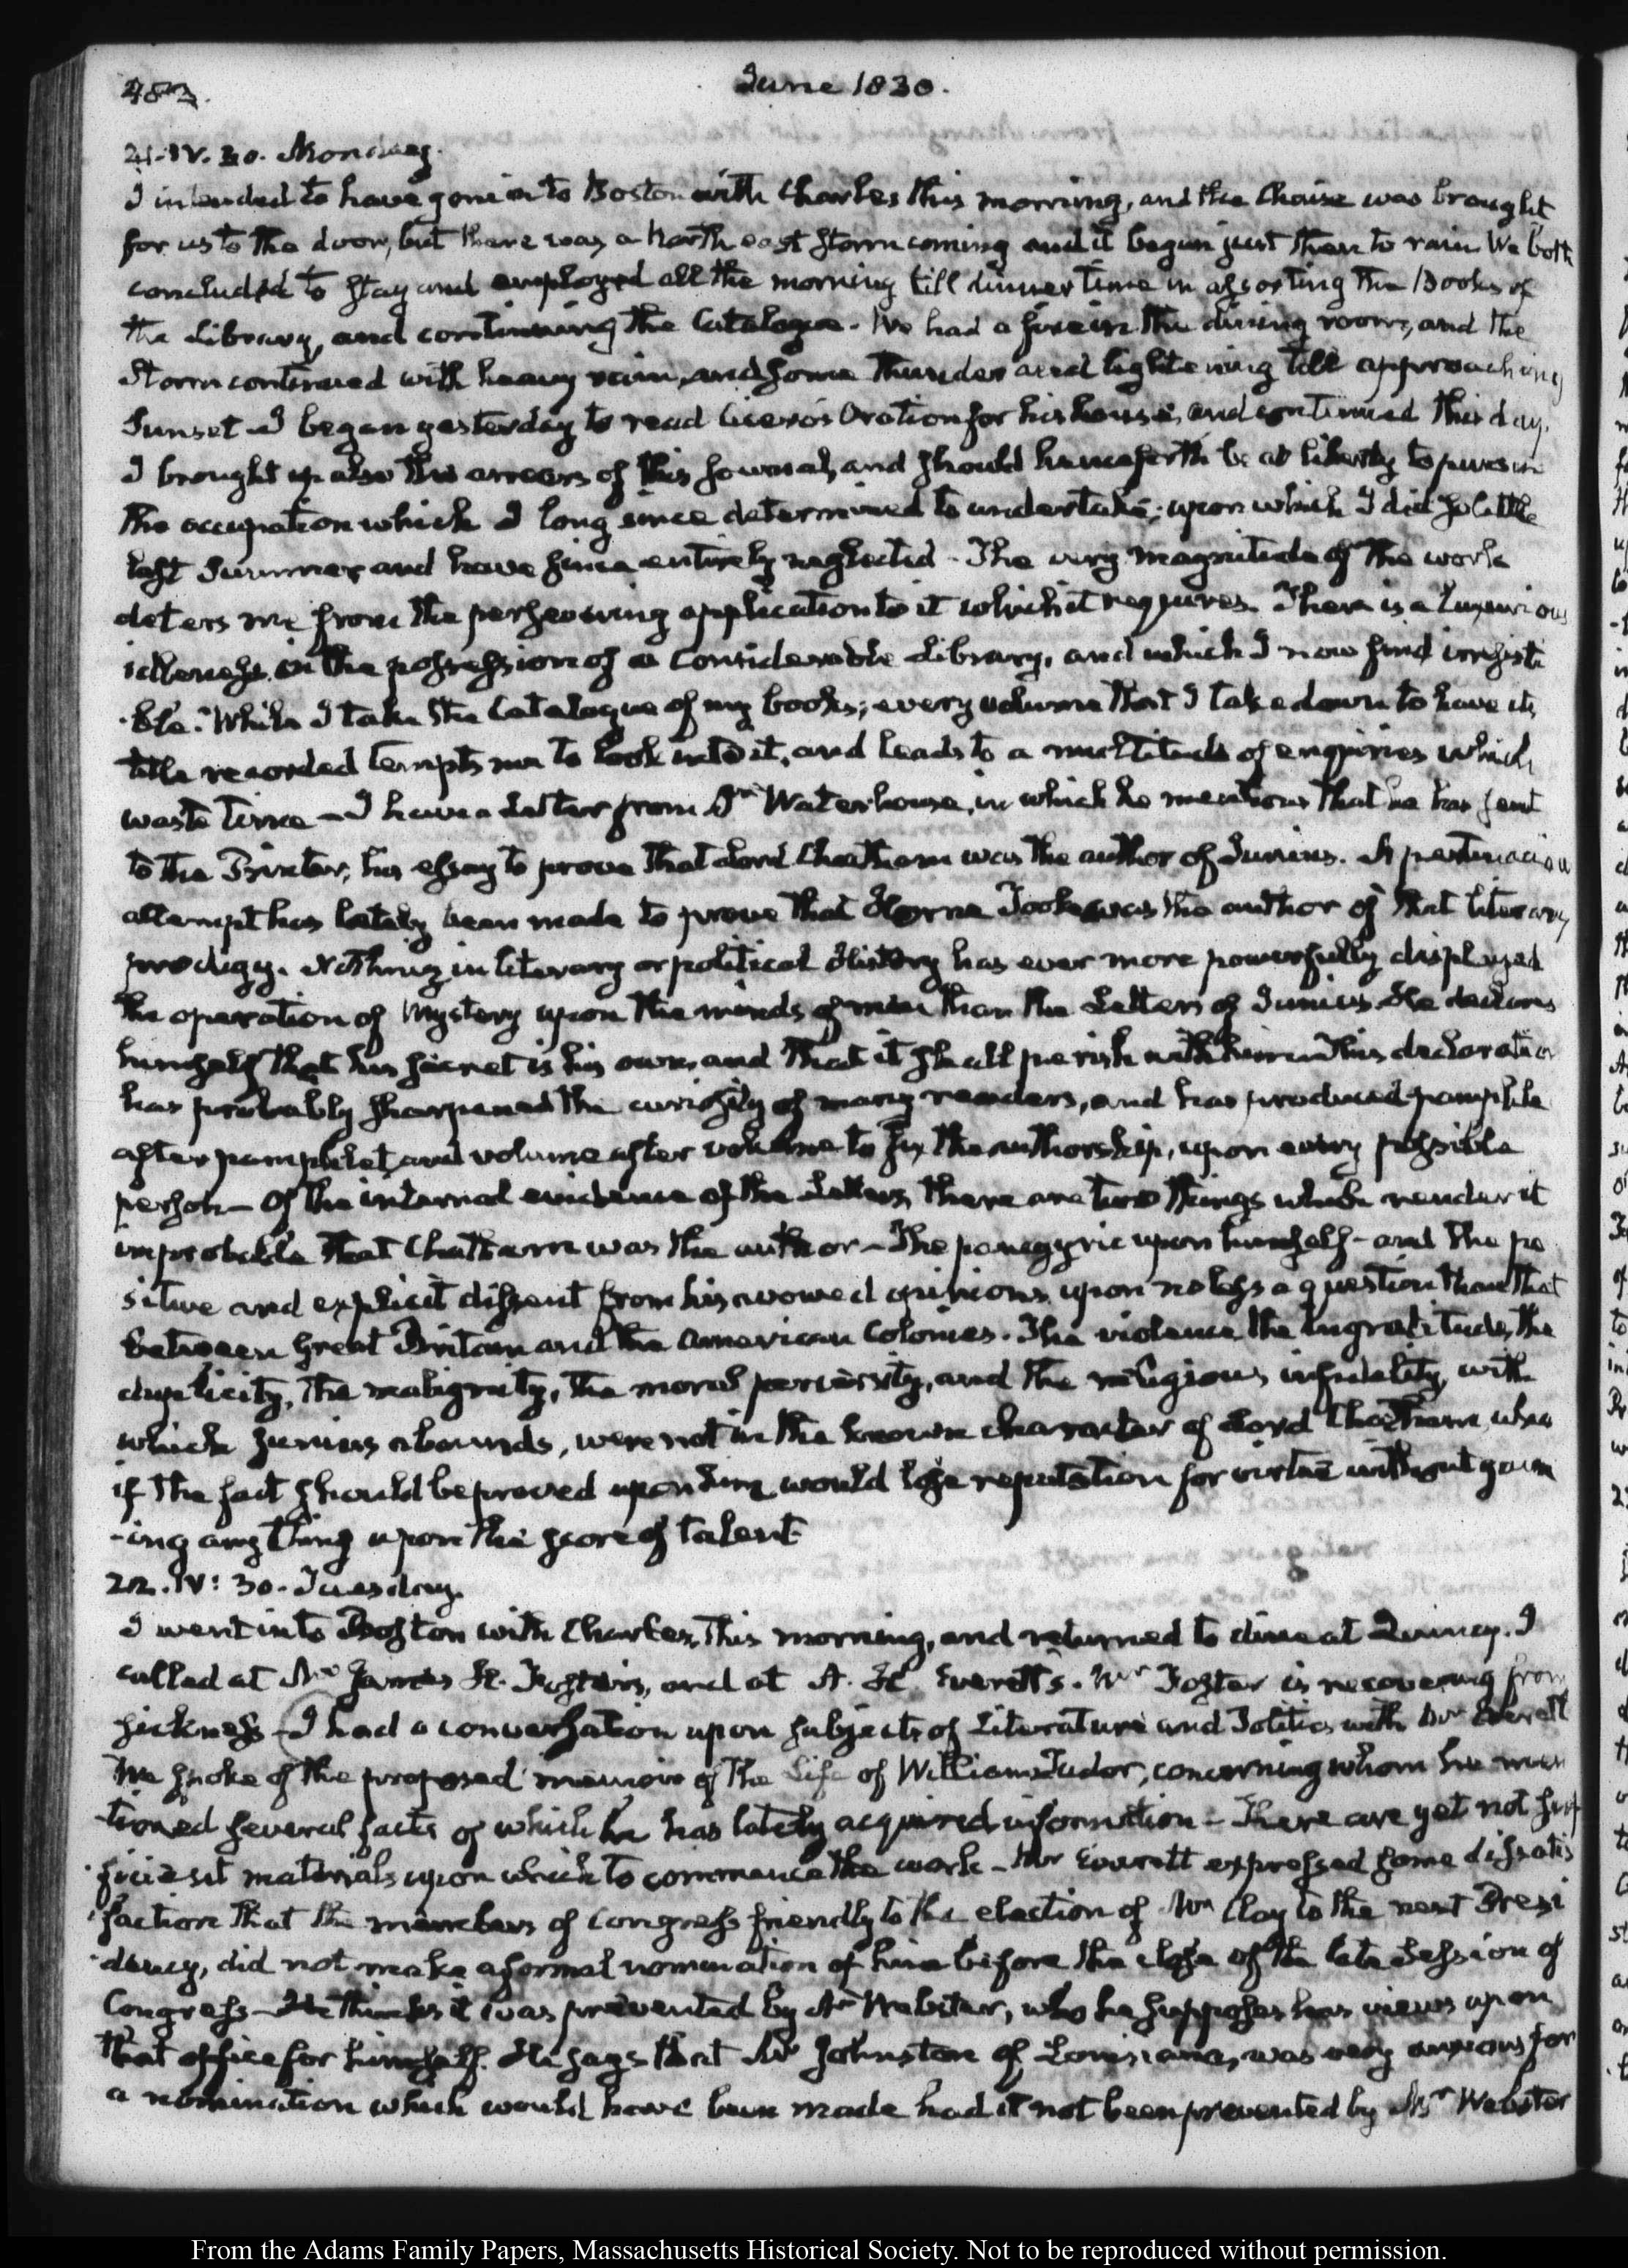 June 1830.
21. IV. 30. Monday.
I intended to have gone into Boston with Charles this morning, and the Chaise was brought
for us to the door, but there was a North east storm coming and it began just then to rain. We both
concluded to stay and employed all the morning till dinner time in assorting the Books of
the Library, and continuing the Catalogue. We had a fire in the dining room, and the
Storm continued with heavy rain, and some Thunder and lightening till approaching
Sunset - I began yesterday to read Cicero's Oration for his house, and continued this day.
I brought up also the arrears of this Journal, and should henceforth be at liberty to pursue
the occupation which I long since determined to undertake; upon which I did so little
last Summer and have since entirely neglected - The very magnitude of the work
deters me from the persevering application to it which it requires. There is a luxurious
idleness in the possession of a considerable Library, and which I now find irresisti
-ble. While I take the Catalogue of my books; every volume that I take down to have its
title recorded tempts me to look into it, and leads to a multitude of enquiries which
waste time - I have a Letter from Dr Waterhouse, in which he mentions that he has sent
to the Printer, his essay to prove that Lord Chatham was the author of Junius. A pertinacious
attempt has lately been made to prove that Horne Tooke was the author of that literary
prodigy. Nothing in literary or political History has ever more powerfully displayed
the operation of Mystery upon the minds of men than the Letters of Junius. He declares
himself that his secret is his own, and that it shall perish with him. This declaration
has probably sharpened the curiosity of many readers, and has produced pamphlet
after pamphlet and volume after volume to fix the authorship, upon every possible
person - Of the internal evidence of the Letters, there are two things which render it
improbable that Chatham was the author - The panegyric upon himself - and the po
sitive and explicit dissent from his avowed opinions upon no less a question than that
between Great Britain and the American Colonies. The violence, the ingratitude, the
duplicity, the malignity, the moral perversity, and the religious infidelity, with
which Junius abounds, were not in the known character of Lord Chatham, who
if the fact should be proved upon him would lose reputation for virtue without gain
-ing any thing upon the score of talent
22. IV: 30. Tuesday.
I went into Boston with Charles, this morning, and returned to dine at Quincy. I
called at Mr James H. Foster's, and at A. H. Everett's. Mr Foster is recovering from
sickness - I had a conversation upon subjects of Literature and Politics with Mr Everett
We spoke of the proposed memoir of the Life of William Tudor, concerning whom he men
-tioned several facts of which he has lately acquired information - There are yet not suf
-ficient materials upon which to commence the work - Mr Everett expressed some dissatis
-faction that the members of Congress friendly to the election of Mr Clay to the next Presi
-dency, did not make a formal nomination of him before the close of the late Session of
Congress - He thinks it was prevented by Mr Webster, who he supposes has views upon
that office for himself. He says that Mr Johnston of Louisiana, was very anxious for
a nomination which would have been made had it not been prevented by Mr Webster
From the Adams Family Papers, Massachusetts Historical Society. Not to be reproduced without permission.